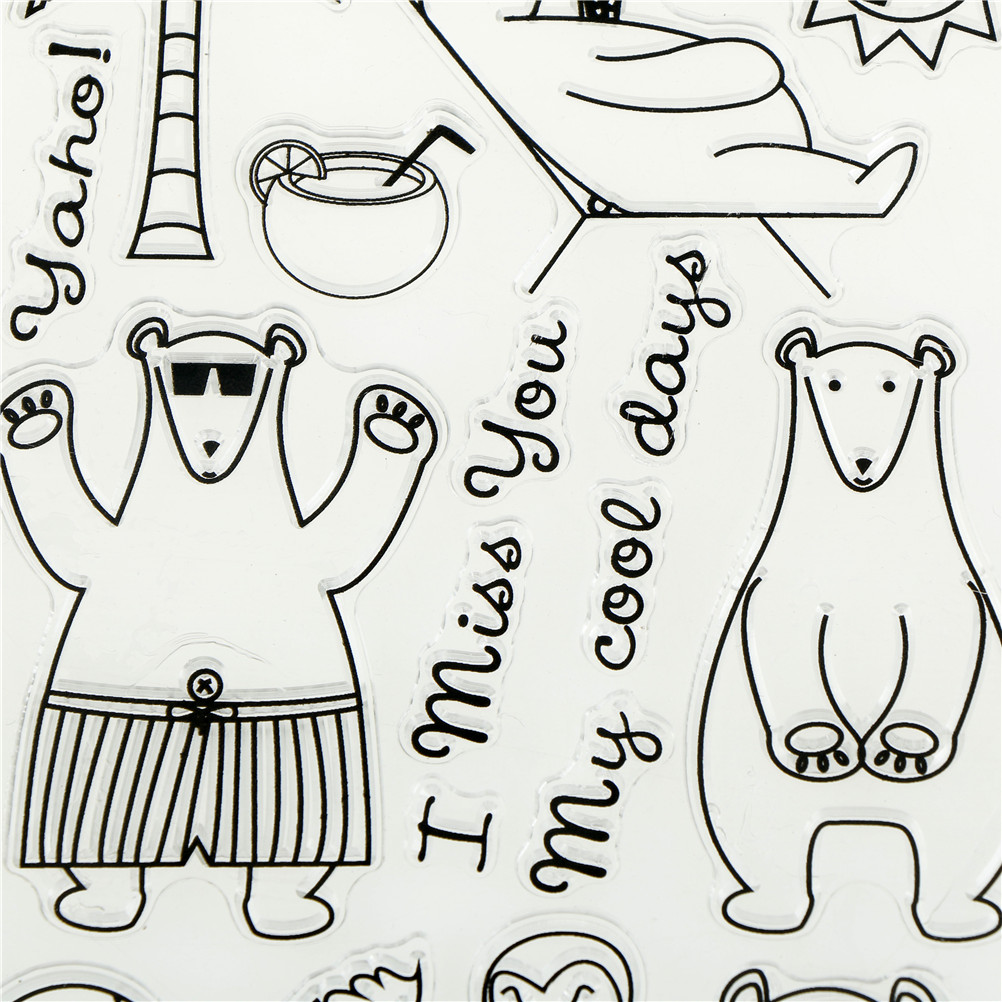 Yaho!
I Miss You
My cool days